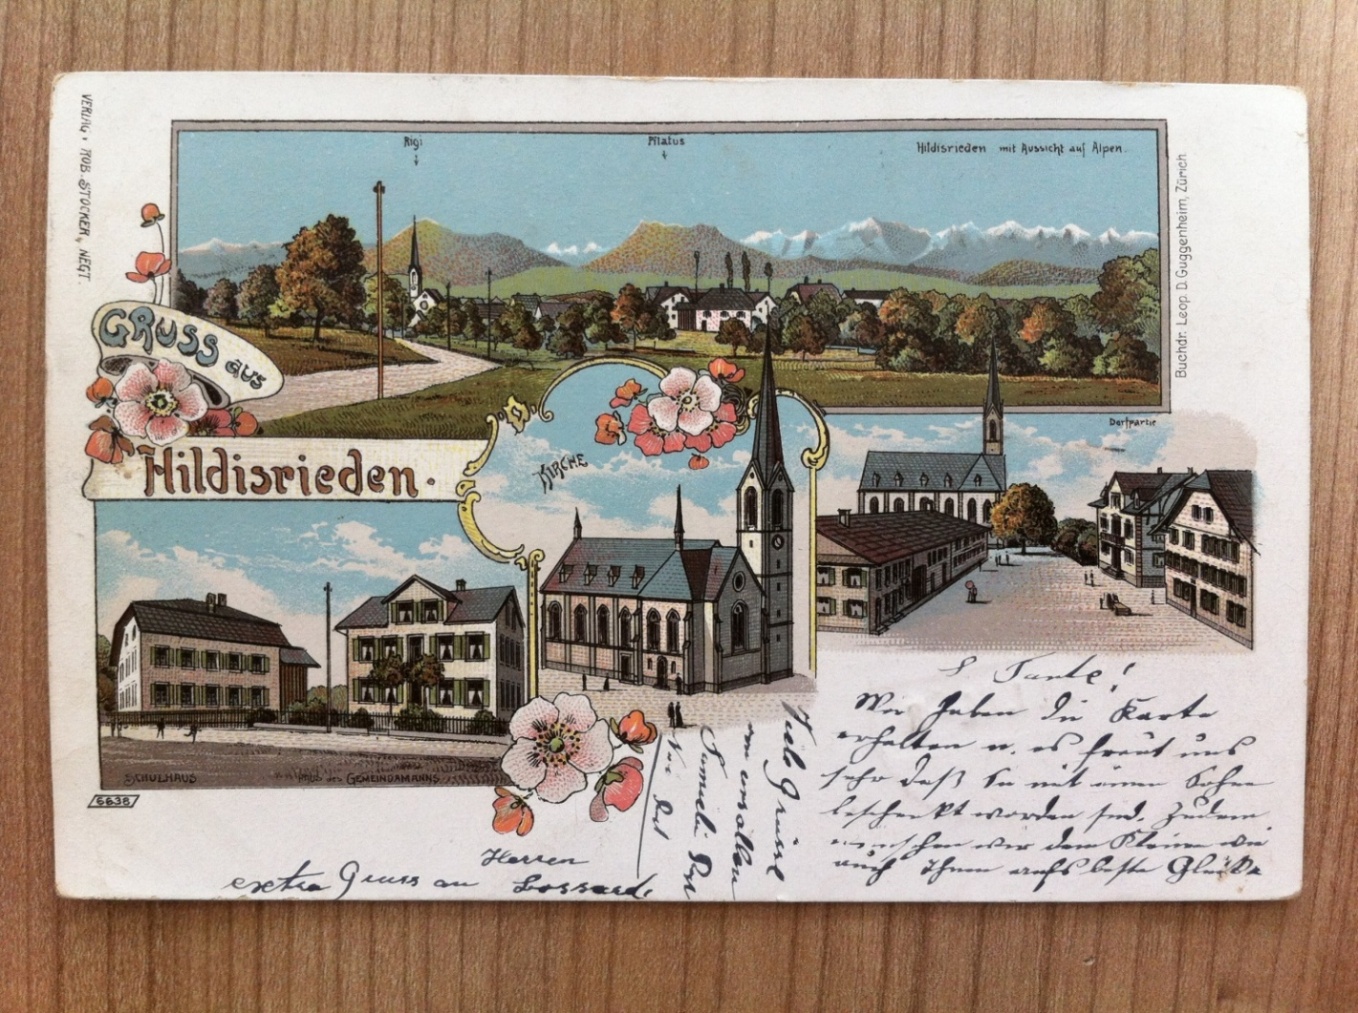 VERLAG v. ROB. STOCKER, NEGT.
Rigi
Pilatus
Hildisrieden mit Aussicht auf Alpen.
Buchdr. Leop. D. Guggenheim, Zürich
GRUSS aus
Hildisrieden.
KIRCHE
Dorfpartie
SCHULHAUS
des GEMEINDAMANNS
6638
L. Tante!
Wir haben die Karte
erhalten u. es freut uns
sehr daß Sie mit einem Sohne
beschenkt worden sind. Zudem
wünschen wir dem Kleinen wie
auch Ihnen aufs beste Glück.
Viele Grüsse
von uns allen
Familie
Herren
extra Gruss an Bossard.